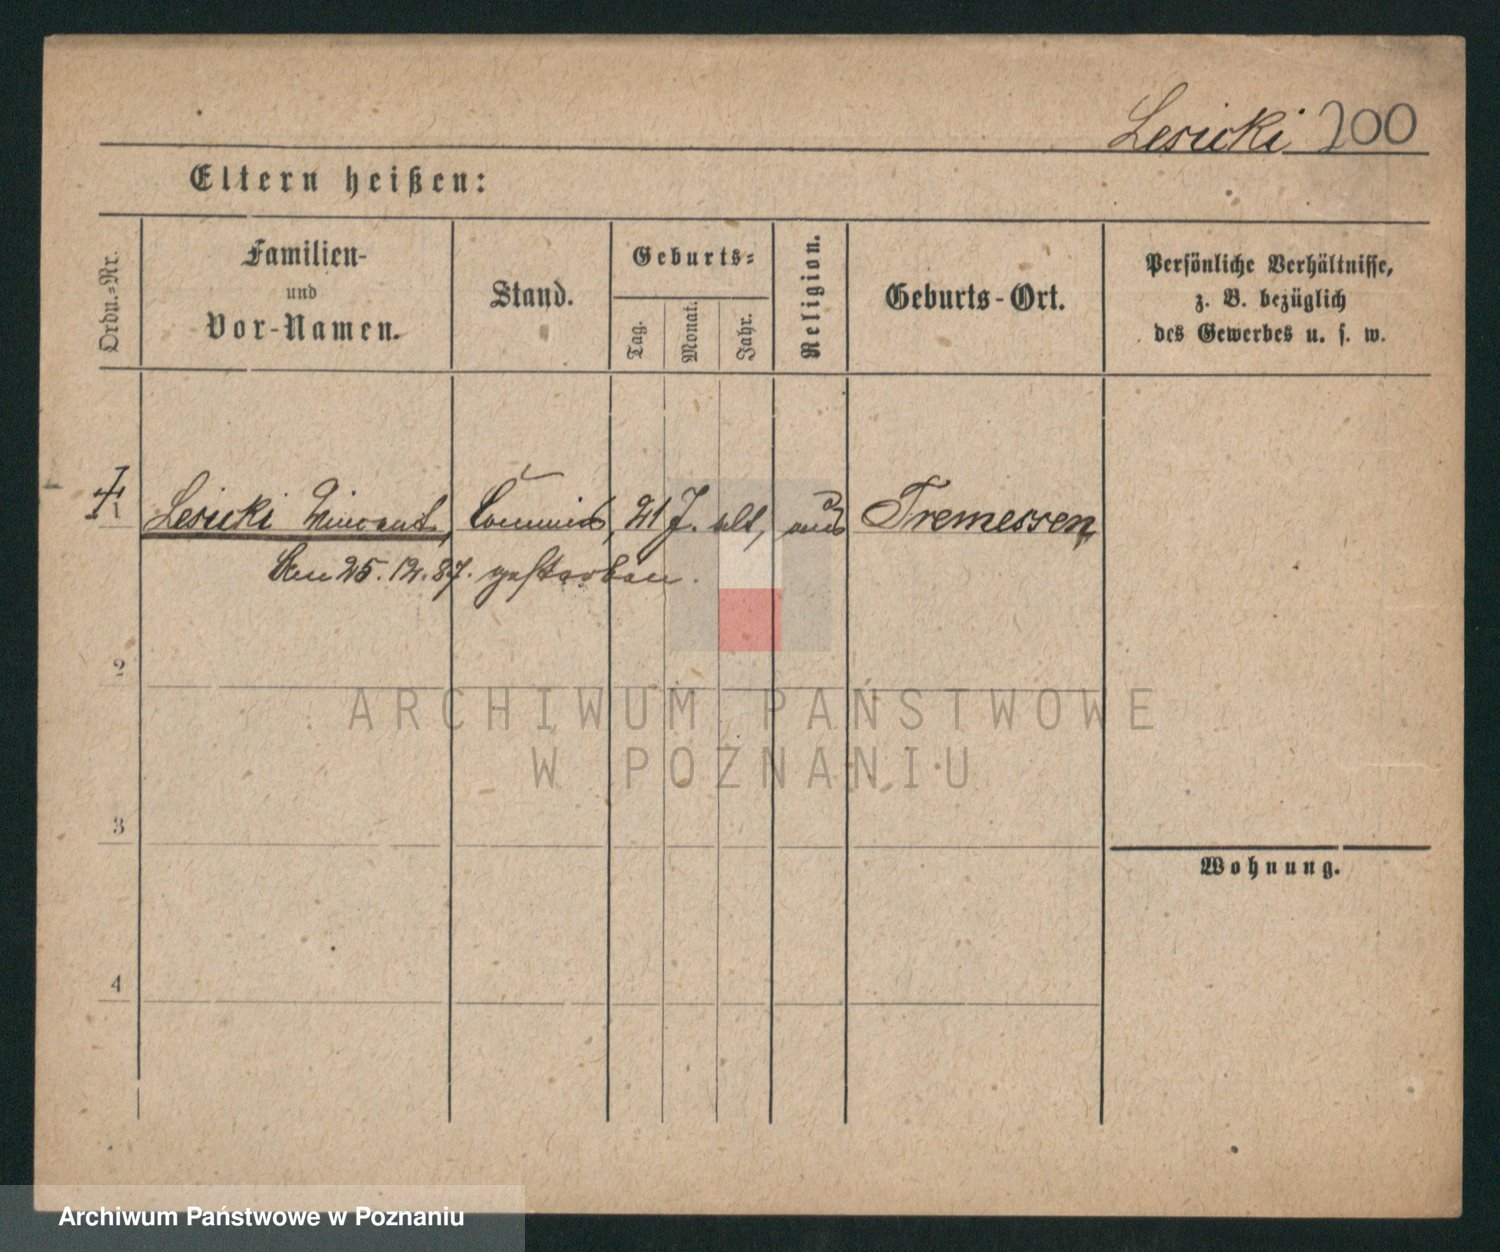 Lesicki 200
Eltern heißen:
Ordn.-Nr.
Familien-
und
Vor-Namen.
Stand.
Geburts-
Tag.
Monat.
Jahr.
Religion.
Geburts-Ort.
Persönliche Verhältnisse,
z. B. bezüglich
des Gewerbes u. s. w.
1 Lesicki Vincent, Commis, 21 J. alt, aus Tremessen
Den 25.12.87. gestorben.
2
3
4
Wohnung.
ARCHIWUM PAŃSTWOWE
W POZNANIU
Archiwum Państwowe w Poznaniu